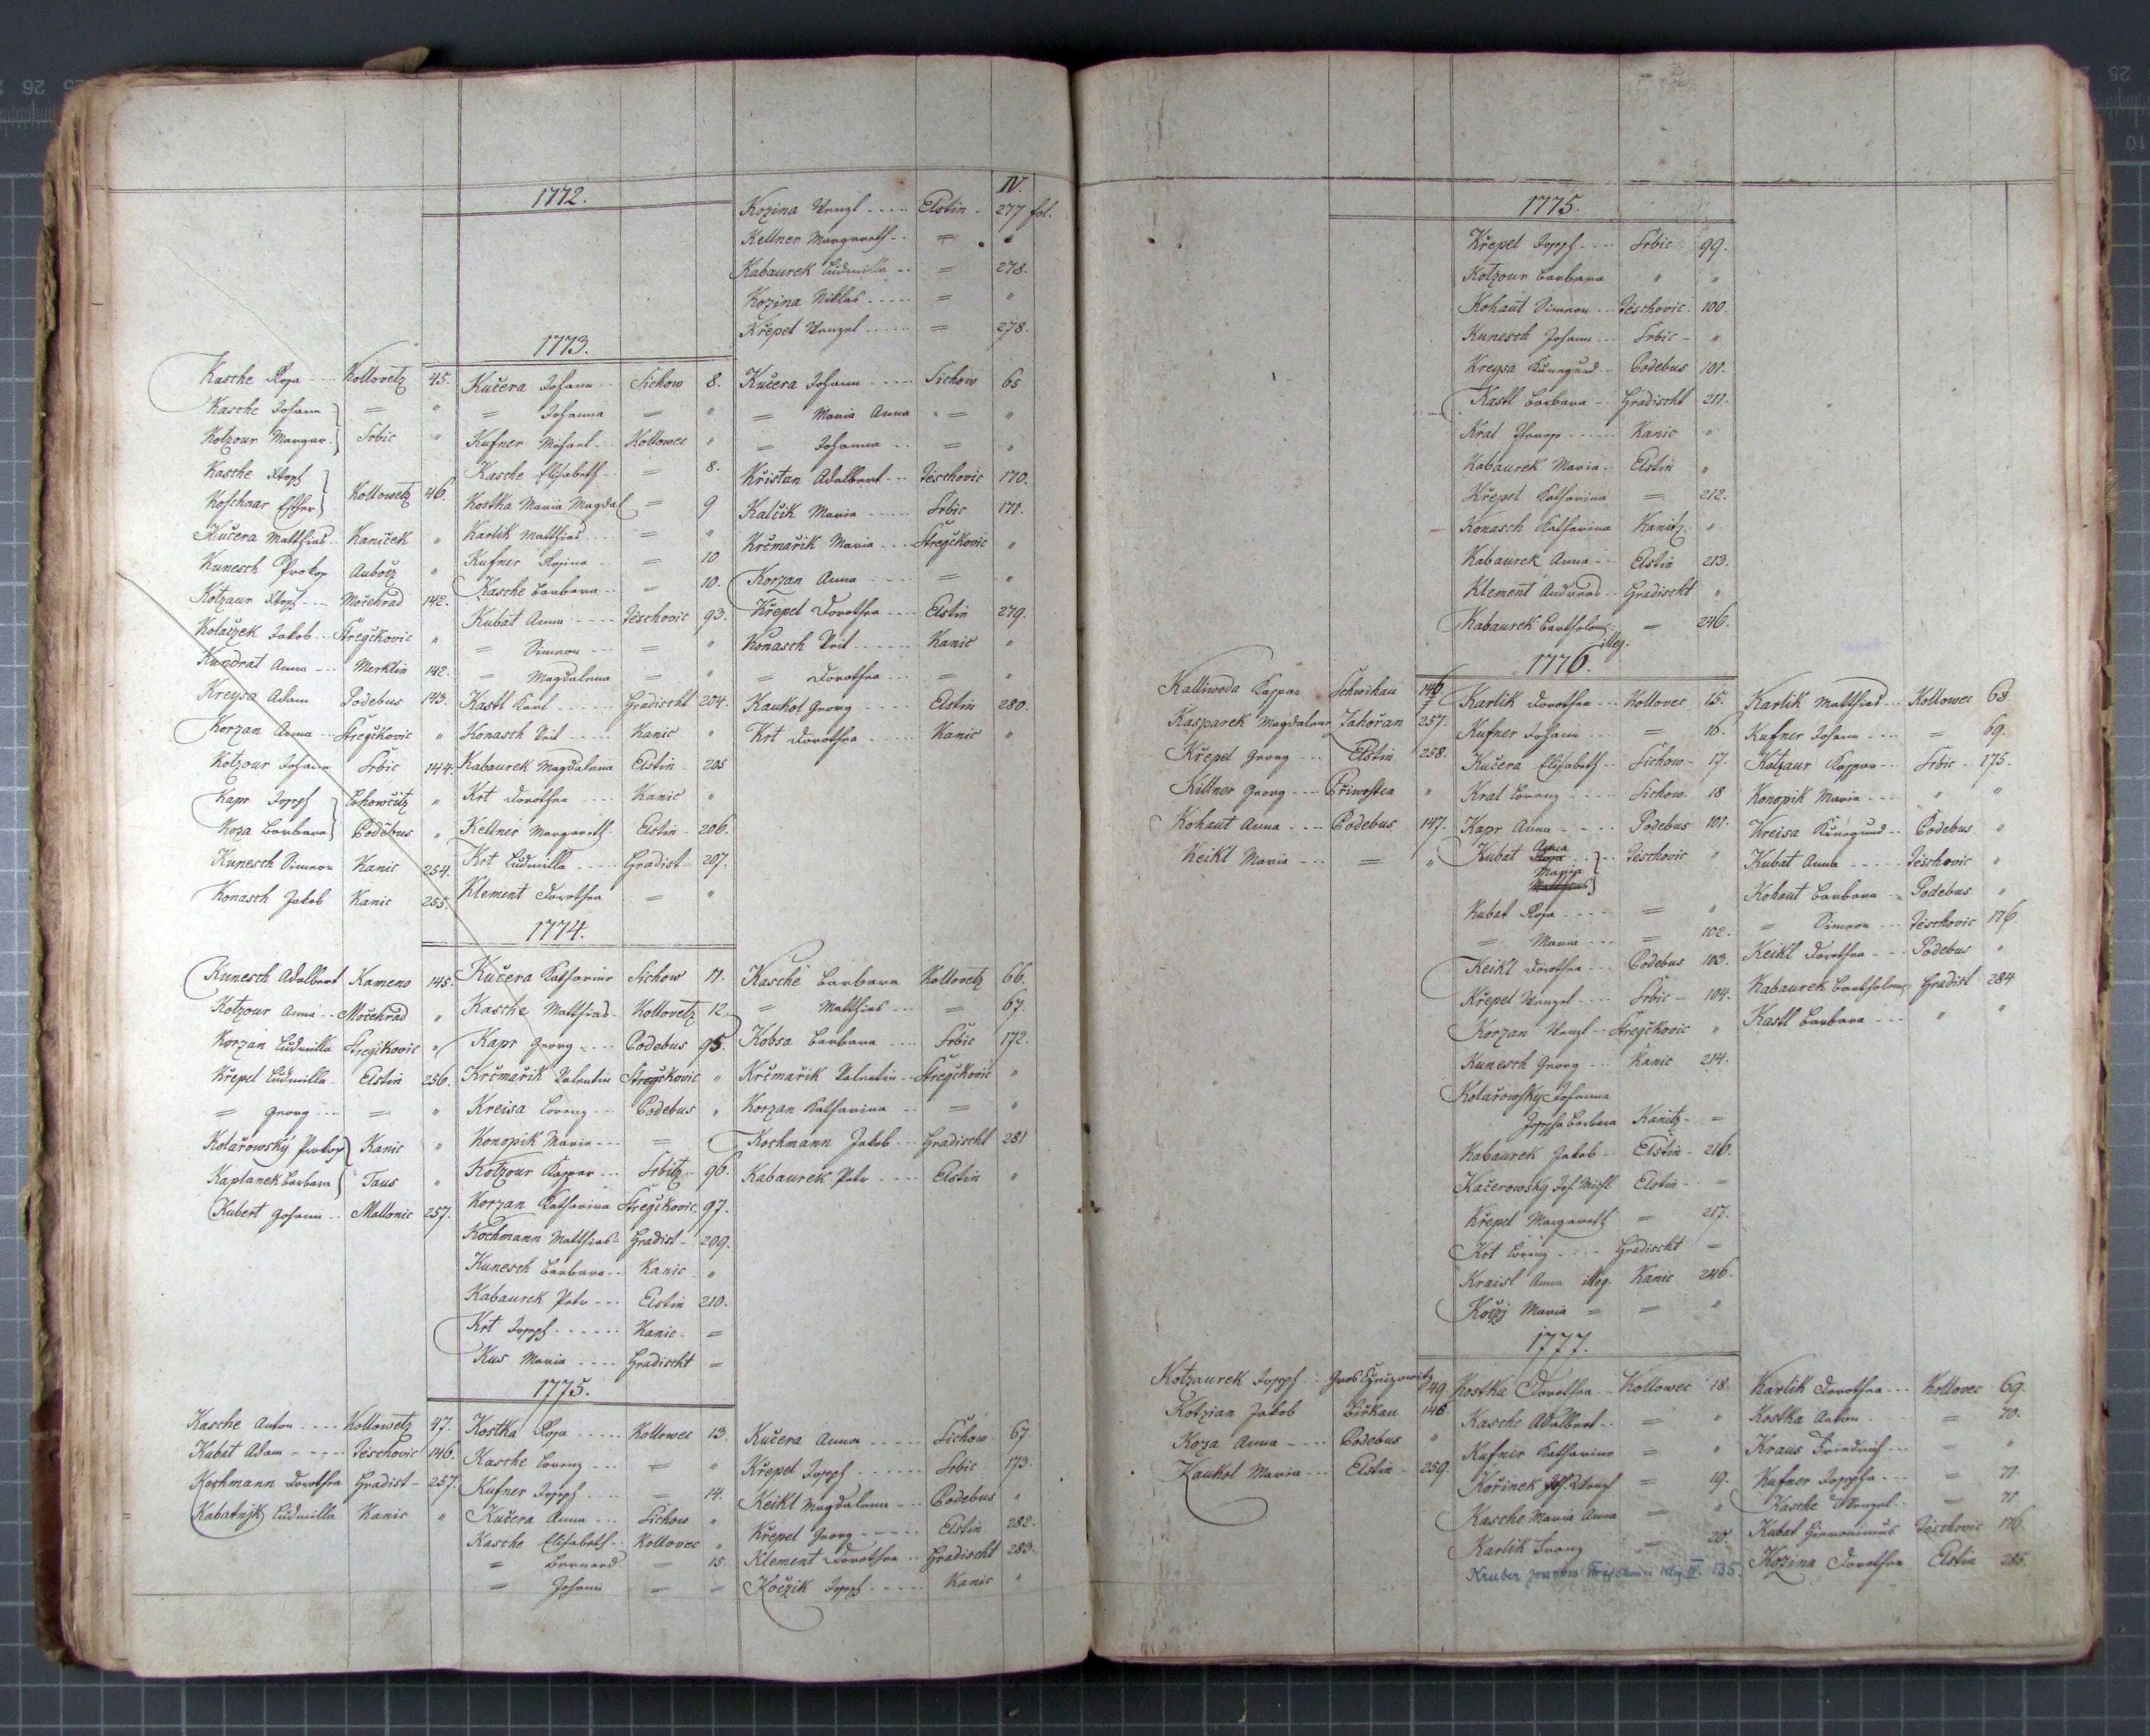 1772.
IV.
Kozina Wenzl Elstin 277 fol.
Kellner Margareth = "
Kabaurek Ludmilla = 278.
Kozina Niklas = "
Křepel Wenzel = 278.
1773.
Kasche Rosa Kollovetz 45.
Kasche Johann = "
Kotzour Margar. Srbic "
Kasche Steph
Koschnar Esther Kollowetz 46.
Kučera Matthias Kaniček "
Kunesch Prokop Aubocz "
Kotzaur Steph Močehrad 142.
Kolaczek Jakob Stregčkovic "
Kundrat Anna Merklin 142.
Kreysa Adam Podebus 143.
Korzan Anna Stregčkovic "
Kotzour Johann Srbic 144.
Kapr Joseph Chowčitz "
Koza Barbara Poděbus "
Kunesch Simeon Kanic 254.
Konasch Jakob Kanic 255.
Kučera Johann Sichow 8.
= Johanna = "
Kufner Michael Kollowec "
Kasche Elisabeth = 8.
Kostka Maria Magdal = 9
Karlik Matthias = "
Kufner Rosina = 10
Kasche Barbara = 10.
Kubat Anna Jeschovic 93.
= Simeon = "
= Magdalena = "
Kastl Karl Gradischt 204.
Konasch Veit Kanic "
Kabaurek Magdalena Elstin 205
Krt Dorothea Kanic "
Kellner Margareth Elstin 206.
Krt Ludmilla Gradist 207.
Klement Dorothea = "
Kučera Johann Sichow 65
= Maria Anna = "
= Johanna = "
Kristan Adalbert Jeschovic 170.
Kalčik Maria Srbic 171.
Krčmařik Maria Stregčkovic "
Korzan Anna = "
Křepel Dorothea Elstin 279.
Konasch Veit Kanic "
= Dorothea = "
Kaukol Georg Elstin 280.
Krt Dorothea Kanic "
1774.
Kunesch Adalbert Kameno 145.
Kotzour Anna Močehrad "
Korzan Ludmilla Stregčkovic "
Křepel Ludmilla Elstin 256.
= Georg = "
Kolařowský Prokop Kanic "
Kaplanek Barbara Taus "
Kubert Johann Mallonic 257.
Kučera Katharina Sichow 11.
Kasche Matthias Kollovetz 12
Kapr Georg Podebus 95.
Krčmařik Valentin Stregčkovic "
Kreisa Lorenz Podebus "
Konopik Maria =
Kotzour Kaspar Srbitz 96.
Korzan Katharina Stregčkovic 97.
Kochmann Matthias Gradist 209.
Kunesch Barbara Kanic "
Kabaurek Petr Elstin 210.
Krt Joseph Kanic =
Kus Maria Gradischt =
Kasche Barbara Kollovetz 66.
= Matthias = 67.
Kobsa Barbara Srbic 172.
Krčmařik Valentin Stregčkovic "
Korzan Katharina = "
Kochmann Jakob Gradischt 281
Kabaurek Petr Elstin "
1775.
Kasche Anton Kollowetz 47.
Kubat Adam Jeschovic 146.
Kochmann Dorothea Gradist 257.
Kabatnjk Ludmilla Kanic "
Kostka Rosa Kollowec 13.
Kasche Lorenz = "
Kufner Joseph = 14.
Kučera Anna Sichow "
Kasche Elisabeth Kollovec "
= Bernard = 15.
= Johann = =
Kučera Anna Sichow 67
Křepel Joseph Srbic 173.
Keikl Magdalena Podebus "
Křepel Georg Elstin 282.
Klement Dorothea Gradischt 283.
Kočzik Joseph Kanic "
1775.
Křepel Joseph Srbic 99.
Kotzour Barbara " "
Kohaut Simeon Jeschovic 100.
Kunesch Johann Srbic "
Kreysa Kunegund Podebus 101.
Kastl Barbara Gradischt 211.
Kral Kanic "
Kabaurek Maria Elstin "
Křepel Katharina = 212.
Konasch Katharina Kanitz "
Kabaurek Anna Elstin 213.
Klement Andreas Gradischt "
Kabaurek Bartholom: illeg. = 246.
1776.
Kalliwoda Kaspar Schwihau 146
Kasparek Magdalena Zahořan 257.
Křepel Georg Elstin 258.
Kittner Georg Přiwostea "
Kohaut Anna Podebus 147.
Keikl Maria = "
Karlik Dorothea Kollovec 15.
Kufner Johann = 16.
Kučera Elisabeth Sichow 17.
Kral Lorenz Sichow 18
Kapr Anna Podebus 101.
Kubat Anna Rosa Jeschovic "
Maria
Matthias
Kubat Rosa = "
= Maria = 102.
Keikl Dorothea Podebus 103.
Křepel Wenzel Srbic 104.
Korzan Wenzl Stregčkovic "
Kunesch Georg Kanic 214.
Kolařowsky Johanna
Josepha Barbara Kanitz =
Kabaurek Jakob Elstin 216.
Kačerowsky Jos. Michl Elstin =
Křepel Margareth = 217.
Krt Lorenz Gradischt =
Kraisl Anna illeg. Kanic 246.
Kočzj Maria = = "
Karlik Matthias Kollowec 68
Kufner Johann = 69.
Kotzaur Kaspar Srbic 175.
Konopik Maria " "
Kreisa Kunegund Podebus "
Kubat Anna Jeschovic "
Kohaut Barbara Podebus "
= Simeon Jeschovic 176.
Keikl Dorothea Podebus "
Kabaurek Bartholom Gradist 284
Kastl Barbara " "
1777.
Kotzaurek Joseph 149.
Kotzian Jakob Birkau 148
Koza Anna Podebus "
Kaukol Maria Elstin 259.
Kostka Dorothea Kollowec 18.
Kasche Adalbert = "
Kufner Katharina = "
Kořinek Joh. Wenzl = 19.
Kasche Maria Anna = "
Karlik Franz = 20.
Kruber Johannes IV. 135.
Karlik Dorothea Kollovec 69.
Kostka Anton = 70.
Kraus Friedrich = "
Kufner Josepha = 71
Kasche Wenzel = 71
Kubat Hieronimus Jeschovic 176
Kozina Dorothea Elstin 285.